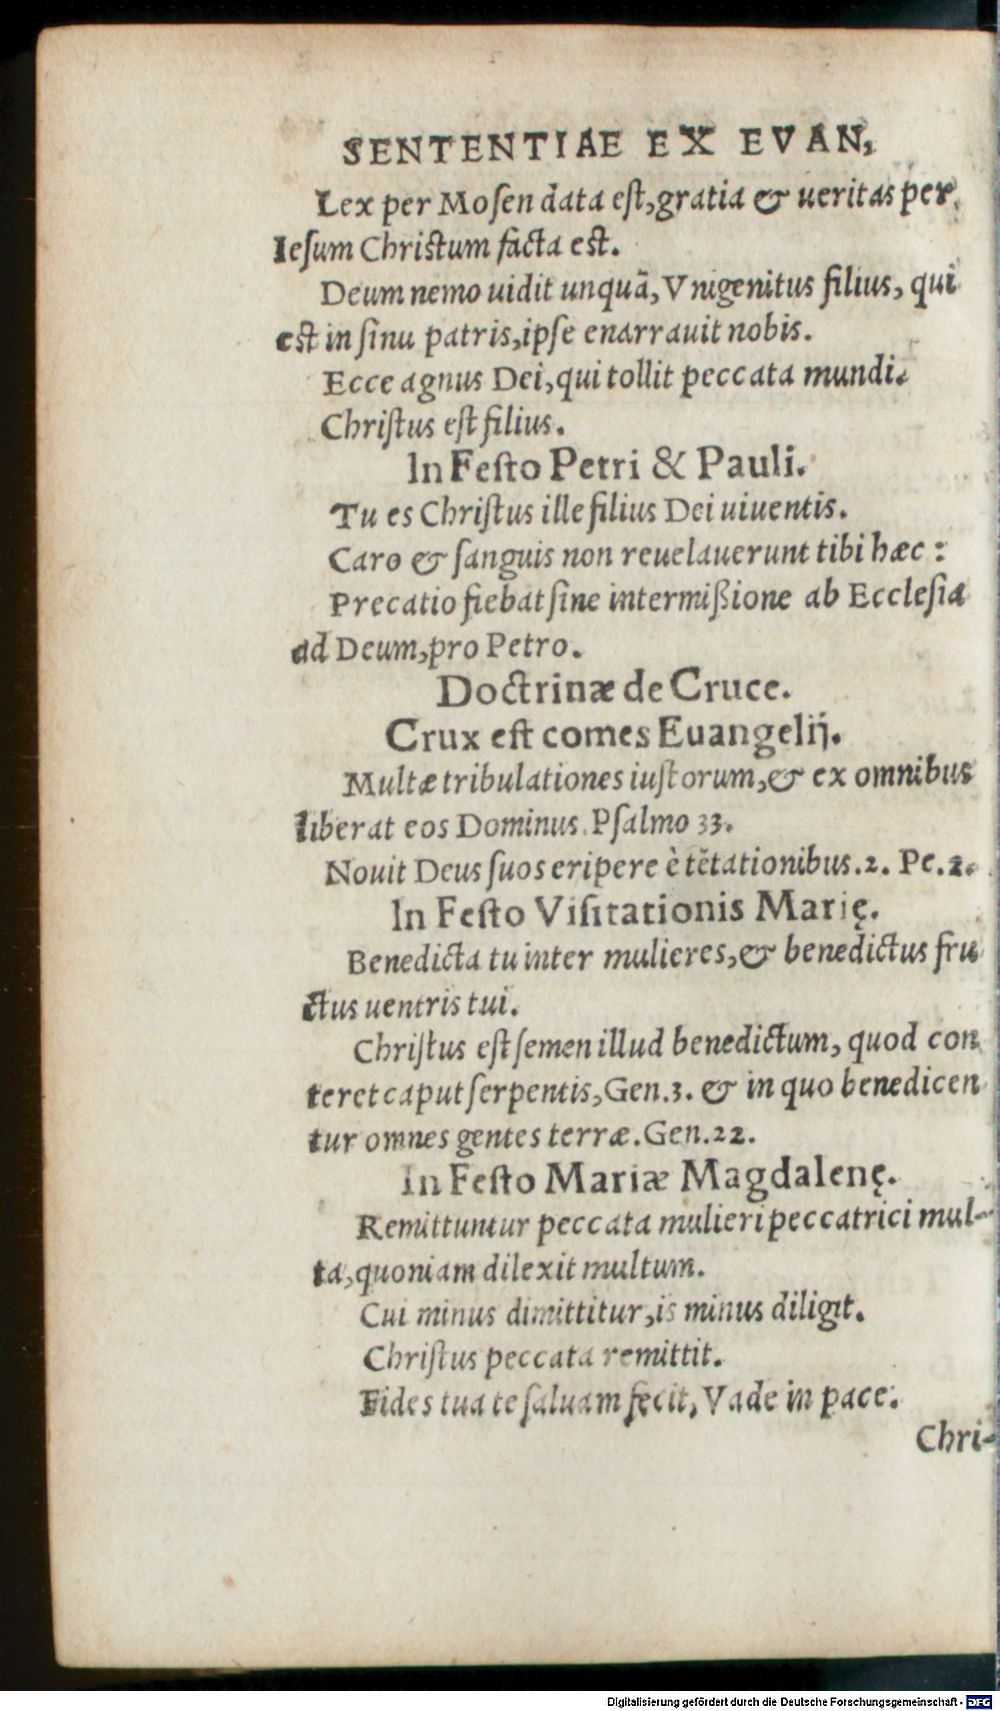 SENTENTIAE EX EVAN,
Lex per Mosen data est, gratia & ueritas per
Iesum Christum facta est.
Deum nemo uidit unquã, Vnigenitus filius, qui
est in sinu patris, ipse enarrauit nobis.
Ecce agnus Dei, qui tollit peccata mundi.
Christus est filius.
In Festo Petri & Pauli.
Tu es Christus ille filius Dei uiuentis.
Caro & sanguis non reuelauerunt tibi hæc:
Precatio fiebat sine intermißione ab Ecclesia
ad Deum, pro Petro.
Doctrinæ de Cruce.
Crux est comes Euangelij.
Multæ tribulationes iustorum, & ex omnibus
liberat eos Dominus. Psalmo 33.
Nouit Deus suos eripere è tẽtationibus. 2. Pe. 2.
In Festo Visitationis Marię.
Benedicta tu inter mulieres, & benedictus fru
ctus uentris tui.
Christus est semen illud benedictum, quod con
teret caput serpentis, Gen. 3. & in quo benedicen
tur omnes gentes terræ. Gen. 22.
In Festo Mariæ Magdalenę.
Remittuntur peccata mulieri peccatrici mul-
ta, quoniam dilexit multum.
Cui minus dimittitur, is minus diligit.
Christus peccata remittit.
Fides tua te saluam fecit, Vade in pace.
Chri-
Digitalisierung gefördert durch die Deutsche Forschungsgemeinschaft - DFG